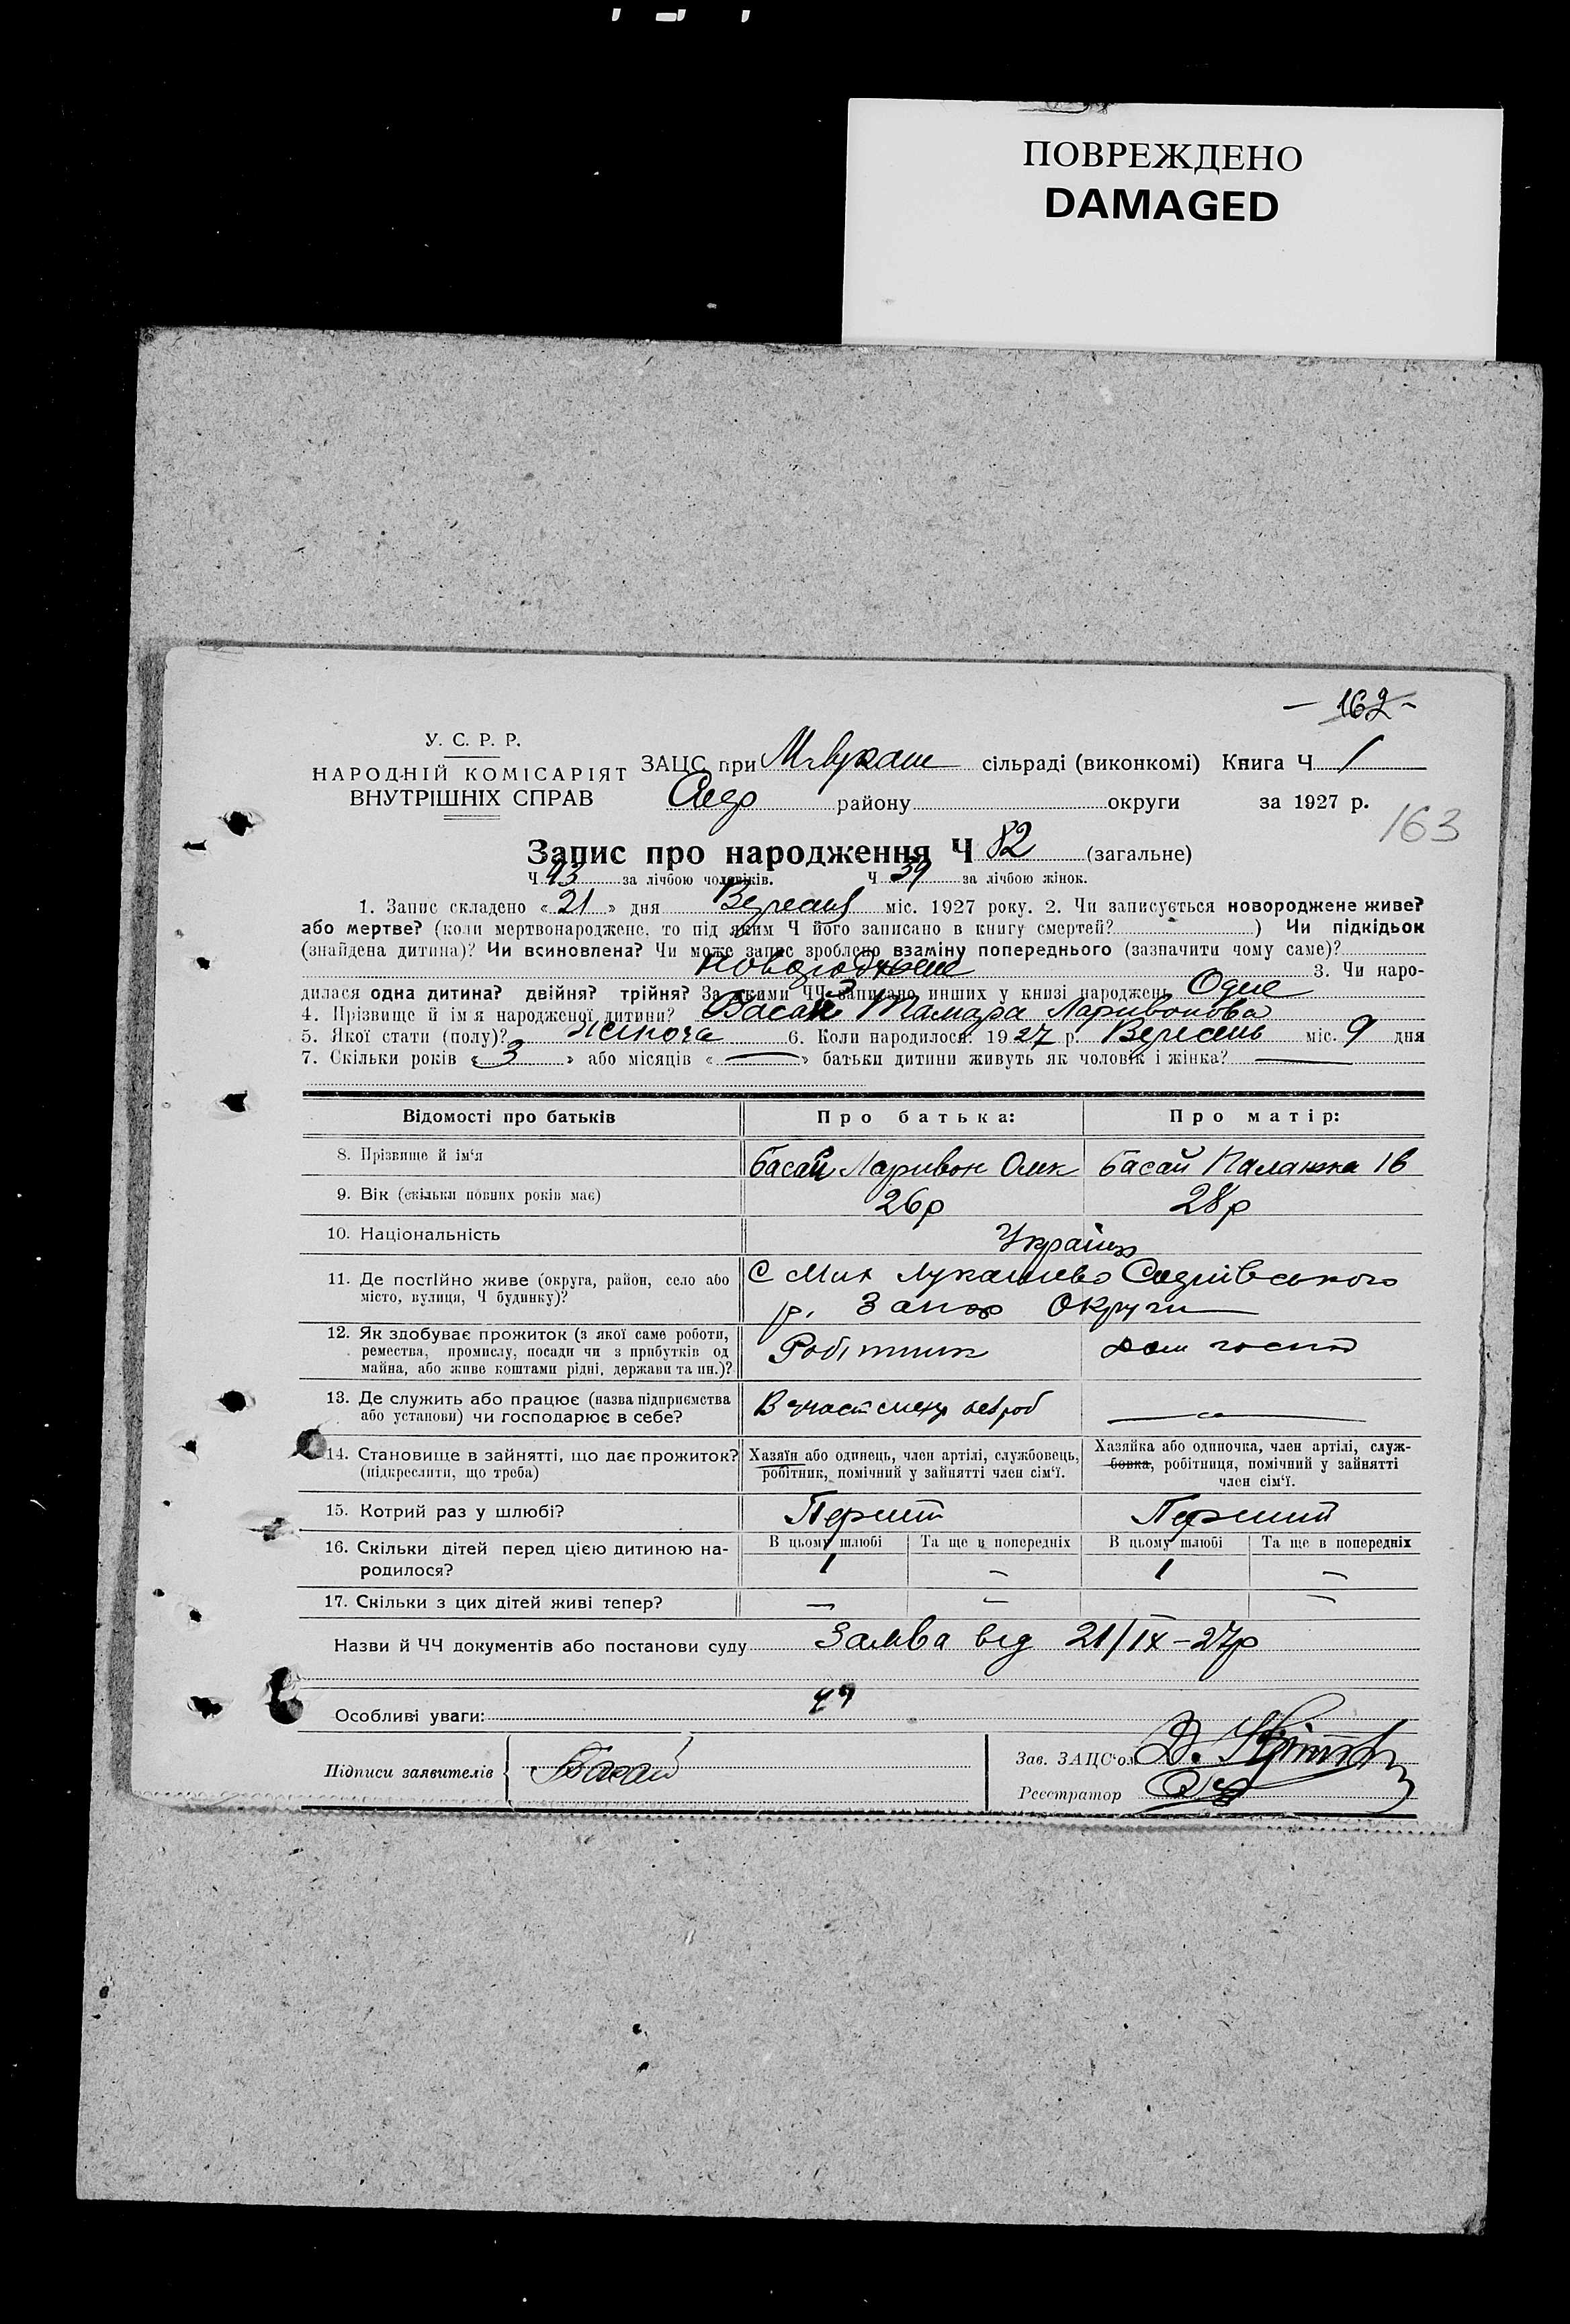 ПОВРЕЖДЕНО
DAMAGED
- 162 -
У. С. Р. Р.
НАРОДНІЙ КОМІСАРІЯТ
ВНУТРІШНІХ СПРАВ
ЗАЦС при М-Лукаш сільраді (виконкомі) Книга Ч 1
району округи за 1927 р.
163
Запис про народження Ч 82 (загальне)
Ч 43 за лічбою чоловіків. Ч 39 за лічбою жінок.
1. Запис складено « 21 » дня Вересня міс. 1927 року. 2. Чи записується новороджене живе?
або мертве? (коли мертвонароджене, то під яким Ч його записано в книгу смертей? ) Чи підкідьок
(знайдена дитина)? Чи всиновлена? Чи може запис зроблено взаміну попереднього (зазначити чому саме)?
новороджене 3. Чи наро-
дилася одна дитина? двійня? трійня? За якими ЧЧ записано инших у книзі народжень Одне
4. Прізвище й ім'я народженої дитини? Басай Тамара Ларивонова
5. Якої стати (полу)? жіноча 6. Коли народилося: 1927 р. Вересень міс. 9 дня
7. Скільки років « 3 » або місяців « — » батьки дитини живуть як чоловік і жінка? —
Відомості про батьків Про батька: Про матір:
8. Прізвище й ім'я Басай Ларивон Олек Басай Палажка Ів
9. Вік (скільки повних років має) 26р 28р
10. Національність Україн
11. Де постійно живе (округа, район, село або
місто, вулиця, Ч будинку)?
С Мих Лукашево
р. Запор Округи
12. Як здобуває прожиток (з якої саме роботи,
ремества, промислу, посади чи з прибутків од
майна, або живе коштами рідні, держави та ин.)?
Робітник дом госп
13. Де служить або працює (назва підприємства
або установи) чи господарює в себе?
—
14. Становище в зайнятті, що дає прожиток?
(підкреслити, що треба)
Хазяїн або одинець, член артілі, службовець,
робітник, помічний у зайнятті член сім'ї.
Хазяйка або одиночка, член артілі, служ-
бовка, робітниця, помічний у зайнятті
член сім'ї.
15. Котрий раз у шлюбі? Перший Перший
16. Скільки дітей перед цією дитиною на-
родилося?
В цьому шлюбі Та ще в попередніх В цьому шлюбі Та ще в попередніх
1 — 1 —
17. Скільки з цих дітей живі тепер? — — —
Назви й ЧЧ документів або постанови суду Заява від 21/IX-27р
Особливі уваги:
Підписи заявителів Басай
Зав. ЗАЦС'ом
Реєстратор